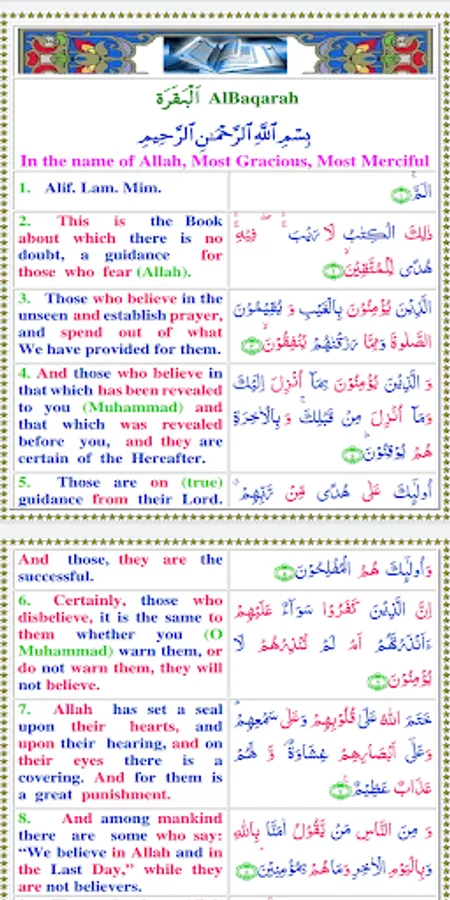 اَلْبَقَرَة AlBaqarah
بِسْمِ اللهِ الرَّحْمٰنِ الرَّحِيمِ
In the name of Allah, Most Gracious, Most Merciful
1. Alif. Lam. Mim.
الٓمّٓ
2. This is the Book
about which there is no
doubt, a guidance for
those who fear (Allah).
ذٰلِكَ الْكِتٰبُ لَا رَيْبَ فِيْهِ
هُدًى لِّلْمُتَّقِيْنَ
3. Those who believe in the
unseen and establish prayer,
and spend out of what
We have provided for them.
الَّذِيْنَ يُؤْمِنُوْنَ بِالْغَيْبِ وَ يُقِيْمُوْنَ
الصَّلٰوةَ وَمِمَّا رَزَقْنٰهُمْ يُنْفِقُوْنَ
4. And those who believe in
that which has been revealed
to you (Muhammad) and
that which was revealed
before you, and they are
certain of the Hereafter.
وَ الَّذِيْنَ يُؤْمِنُوْنَ بِمَآ اُنْزِلَ اِلَيْكَ
وَمَآ اُنْزِلَ مِنْ قَبْلِكَ وَ بِالْاٰخِرَةِ
هُمْ يُوْقِنُوْنَ
5. Those are on (true)
guidance from their Lord.
اُولٰٓئِكَ عَلٰى هُدًى مِّنْ رَّبِّهِمْ
And those, they are the
successful.
وَاُولٰٓئِكَ هُمُ الْمُفْلِحُوْنَ
6. Certainly, those who
disbelieve, it is the same to
them whether you (O
Muhammad) warn them, or
do not warn them, they will
not believe.
اِنَّ الَّذِيْنَ كَفَرُوْا سَوَآءٌ عَلَيْهِمْ
ءَاَنْذَرْتَهُمْ اَمْ لَمْ تُنْذِرْهُمْ لَا
يُؤْمِنُوْنَ
7. Allah has set a seal
upon their hearts, and
upon their hearing, and on
their eyes there is a
covering. And for them is
a great punishment.
خَتَمَ اللهُ عَلٰى قُلُوْبِهِمْ وَعَلٰى سَمْعِهِمْ
وَعَلٰٓى اَبْصَارِهِمْ غِشَاوَةٌ وَّ لَهُمْ
عَذَابٌ عَظِيْمٌ
8. And among mankind
there are some who say:
“We believe in Allah and in
the Last Day,” while they
are not believers.
وَ مِنَ النَّاسِ مَنْ يَّقُوْلُ اٰمَنَّا بِاللهِ
وَبِالْيَوْمِ الْاٰخِرِ وَمَا هُمْ بِمُؤْمِنِيْنَ